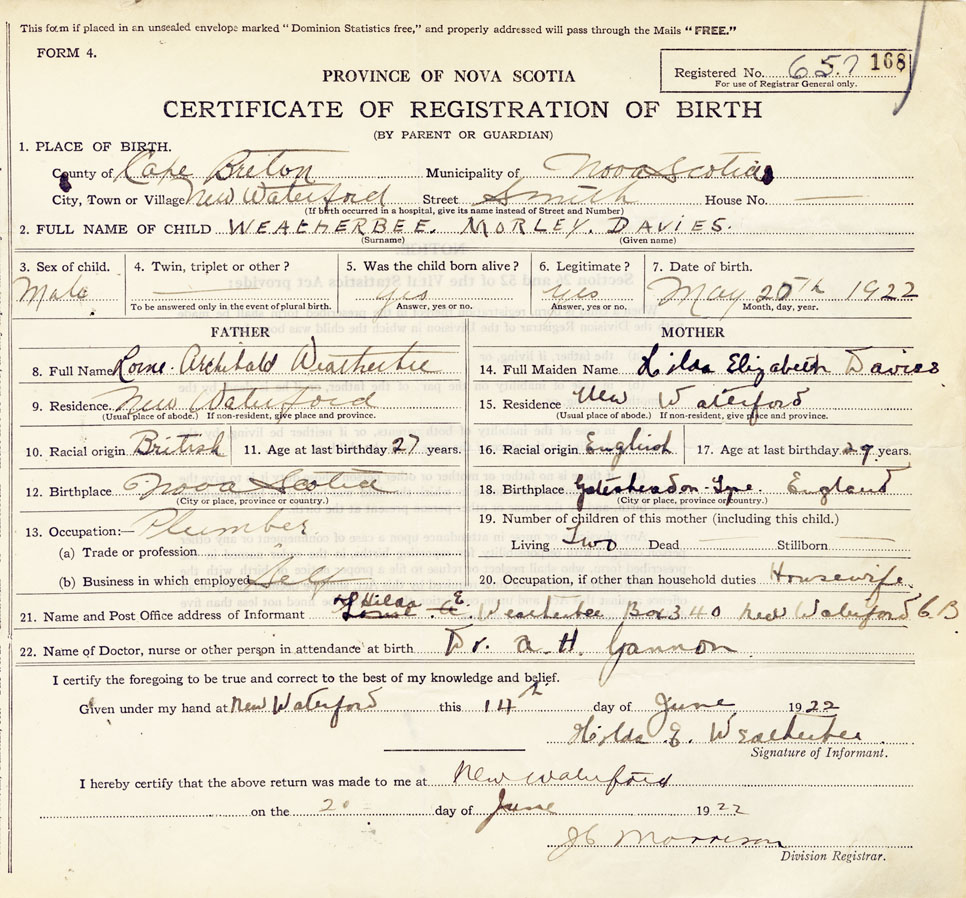 This form if placed in an unsealed envelope marked “Dominion Statistics free,” and properly addressed will pass through the Mails “FREE.”
FORM 4.
Registered No. 657 168
For use of Registrar General only.
PROVINCE OF NOVA SCOTIA
CERTIFICATE OF REGISTRATION OF BIRTH
(BY PARENT OR GUARDIAN)
1. PLACE OF BIRTH.
County of Cape Breton Municipality of Nova Scotia
City, Town or Village New Waterford Street Smith House No. —
(If birth occurred in a hospital, give its name instead of Street and Number)
2. FULL NAME OF CHILD WEATHERBEE. MORLEY. DAVIES.
(Surname) (Given name)
3. Sex of child. 4. Twin, triplet or other? 5. Was the child born alive? 6. Legitimate? 7. Date of birth.
Male — yes yes May 20th 1922
To be answered only in the event of plural birth. Answer, yes or no. Answer, yes or no. Month, day, year.
FATHER MOTHER
8. Full Name Lorne. Archibald Weatherbee 14. Full Maiden Name Hilda Elizabeth Davies
9. Residence New Waterford 15. Residence New Waterford
(Usual place of abode.) If non-resident, give place and province. (Usual place of abode.) If non-resident, give place and province.
10. Racial origin British 11. Age at last birthday 27 years. 16. Racial origin English 17. Age at last birthday 29 years.
12. Birthplace Nova Scotia 18. Birthplace Gatesheadon-Tyne. England
(City or place, province or country.) (City or place, province or country.)
13. Occupation: Plumber 19. Number of children of this mother (including this child.)
(a) Trade or profession Living Two Dead — Stillborn —
(b) Business in which employed Self 20. Occupation, if other than household duties Housewife.
21. Name and Post Office address of Informant Hilda E. Weatherbee Box 340 New Waterford C.B
22. Name of Doctor, nurse or other person in attendance at birth Dr. A. H. Gannon
I certify the foregoing to be true and correct to the best of my knowledge and belief.
Given under my hand at New Waterford this 14th day of June 1922
Hilda E. Weatherbee.
Signature of Informant.
I hereby certify that the above return was made to me at New Waterford
on the 20 day of June 1922
J C Morrison
Division Registrar.